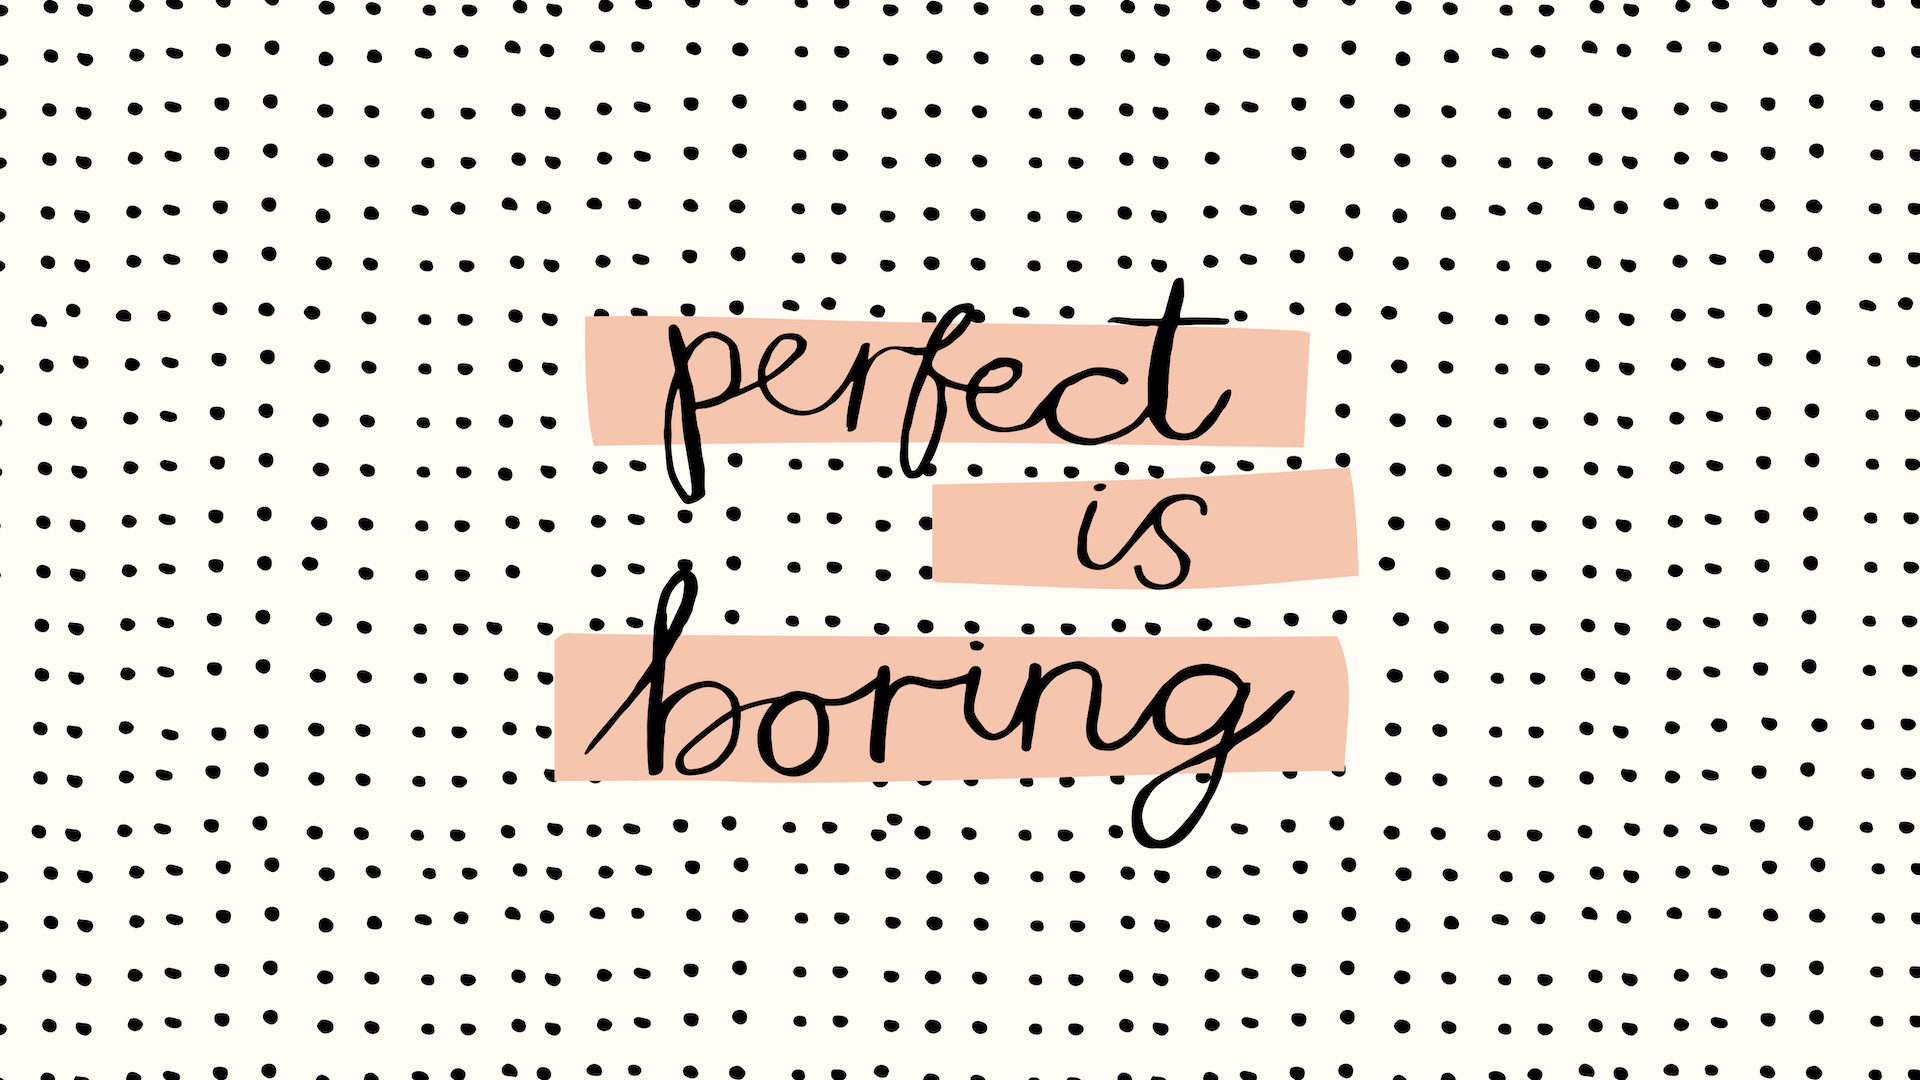 perfect
is
boring